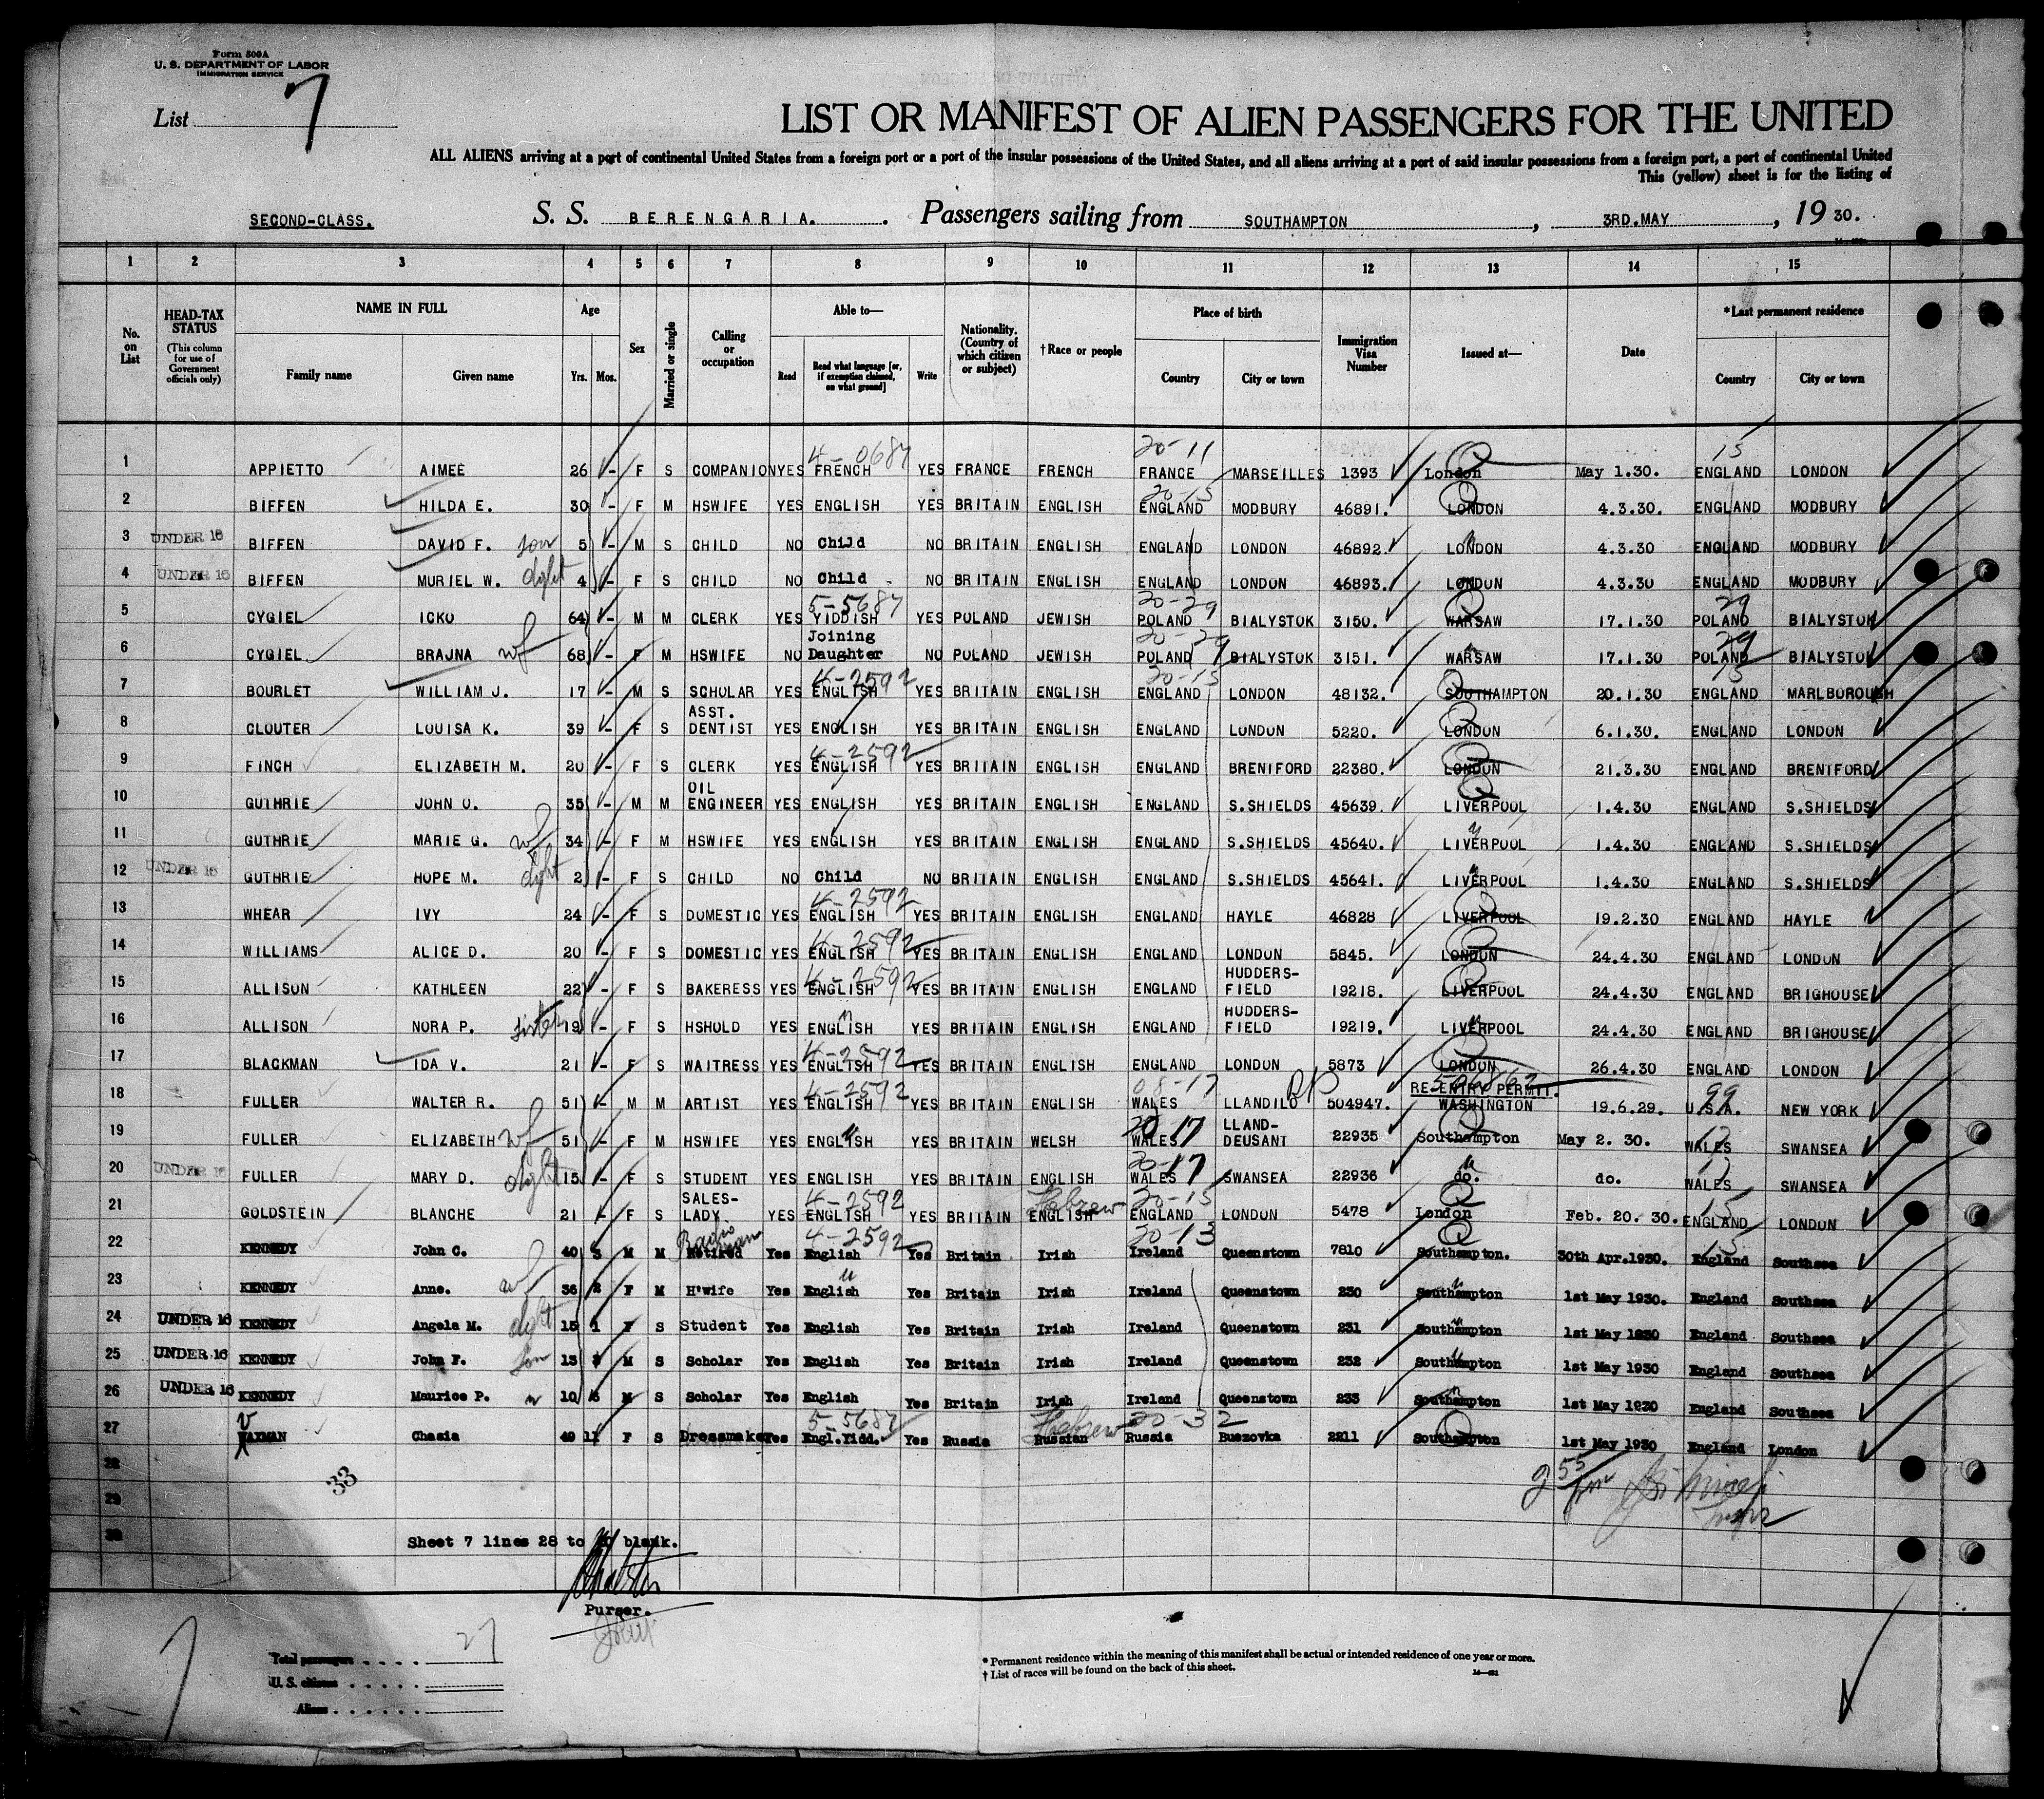 Form 500A
U. S. DEPARTMENT OF LABOR
IMMIGRATION SERVICE
List 7
LIST OR MANIFEST OF ALIEN PASSENGERS FOR THE UNITED
ALL ALIENS arriving at a port of continental United States from a foreign port or a port of the insular possessions of the United States, and all aliens arriving at a port of said insular possessions from a foreign port, a port of continental United
This (yellow) sheet is for the listing of
SECOND-CLASS. S. S. BERENGARIA. Passengers sailing from SOUTHAMPTON, 3RD.MAY, 19 30.
1 2 3 4 5 6 7 8 9 10 11 12 13 14 15
No. on List
HEAD-TAX STATUS (This column for use of Government officials only)
NAME IN FULL
Family name Given name
Age
Yrs. Mos.
Sex
Married or single
Calling or occupation
Able to—
Read Read what language [or, if exemption claimed, on what ground] Write
Nationality. (Country of which citizen or subject)
†Race or people
Place of birth
Country City or town
Immigration Visa Number
Issued at—
Date
*Last permanent residence
Country City or town
4-0687 20-11 15
1 APPIETTO AIMEE 26 - F S COMPANION YES FRENCH YES FRANCE FRENCH FRANCE MARSEILLES 1393 London May 1.30. ENGLAND LONDON
20-15
2 BIFFEN HILDA E. 30 - F M HSWIFE YES ENGLISH YES BRITAIN ENGLISH ENGLAND MODBURY 46891. LONDON 4.3.30. ENGLAND MODBURY
3 UNDER 16 BIFFEN DAVID F. son 5 - M S CHILD NO Child NO BRITAIN ENGLISH ENGLAND LONDON 46892. LONDON 4.3.30 ENGLAND MODBURY
4 UNDER 16 BIFFEN MURIEL W. dght 4 - F S CHILD NO Child NO BRITAIN ENGLISH ENGLAND LONDON 46893. LONDON 4.3.30 ENGLAND MODBURY
5-5687 20-29 29
5 CYGIEL ICKO 64 - M M CLERK YES YIDDISH YES POLAND JEWISH POLAND BIALYSTOK 3150. WARSAW 17.1.30 POLAND BIALYSTOK
Joining 20-29 29
6 CYGIEL BRAJNA wf 68 - F M HSWIFE NO Daughter NO POLAND JEWISH POLAND BIALYSTOK 3151. WARSAW 17.1.30 POLAND BIALYSTOK
4-2592 20-15 15
7 BOURLET WILLIAM J. 17 - M S SCHOLAR YES ENGLISH YES BRITAIN ENGLISH ENGLAND LONDON 48132. SOUTHAMPTON 20.1.30 ENGLAND MARLBOROUGH
ASST.
8 CLOUTER LOUISA K. 39 - F S DENTIST YES ENGLISH YES BRITAIN ENGLISH ENGLAND LONDON 5220. LONDON 6.1.30. ENGLAND LONDON
4-2592
9 FINCH ELIZABETH M. 20 - F S CLERK YES ENGLISH YES BRITAIN ENGLISH ENGLAND BRENTFORD 22380. LONDON 21.3.30 ENGLAND BRENTFORD
OIL
10 GUTHRIE JOHN O. 35 - M M ENGINEER YES ENGLISH YES BRITAIN ENGLISH ENGLAND S.SHIELDS 45639. LIVERPOOL 1.4.30 ENGLAND S.SHIELDS
11 GUTHRIE MARIE G. wf 34 - F M HSWIFE YES ENGLISH YES BRITAIN ENGLISH ENGLAND S.SHIELDS 45640. LIVERPOOL 1.4.30 ENGLAND S.SHIELDS
12 UNDER 16 GUTHRIE HOPE M. dght 2 - F S CHILD NO Child NO BRITAIN ENGLISH ENGLAND S.SHIELDS 45641. LIVERPOOL 1.4.30 ENGLAND S.SHIELDS
4-2592
13 WHEAR IVY 24 - F S DOMESTIC YES ENGLISH YES BRITAIN ENGLISH ENGLAND HAYLE 46828 LIVERPOOL 19.2.30 ENGLAND HAYLE
4-2592
14 WILLIAMS ALICE D. 20 - F S DOMESTIC YES ENGLISH YES BRITAIN ENGLISH ENGLAND LONDON 5845. LONDON 24.4.30 ENGLAND LONDON
4-2592 HUDDERS-
15 ALLISON KATHLEEN 22 - F S BAKERESS YES ENGLISH YES BRITAIN ENGLISH ENGLAND FIELD 19218. LIVERPOOL 24.4.30 ENGLAND BRIGHOUSE
HUDDERS-
16 ALLISON NORA P. sister 19 - F S HSHOLD YES ENGLISH YES BRITAIN ENGLISH ENGLAND FIELD 19219. LIVERPOOL 24.4.30 ENGLAND BRIGHOUSE
4-2592
17 BLACKMAN IDA V. 21 - F S WAITRESS YES ENGLISH YES BRITAIN ENGLISH ENGLAND LONDON 5873 LONDON 26.4.30 ENGLAND LONDON
4-2592 08-17 RP 506862 RE-ENTRY PERMIT. 99
18 FULLER WALTER R. 51 - M M ARTIST YES ENGLISH YES BRITAIN ENGLISH WALES LLANDILO 504947. WASHINGTON 19.6.29. U.S.A. NEW YORK
20-17 LLAND- 17
19 FULLER ELIZABETH wf 51 - F M HSWIFE YES ENGLISH YES BRITAIN WELSH WALES DEUSANT 22935 Southampton May 2. 30. WALES SWANSEA
20-17 17
20 UNDER 16 FULLER MARY D. dght 15 - F S STUDENT YES ENGLISH YES BRITAIN ENGLISH WALES SWANSEA 22936 do. do. WALES SWANSEA
SALES- 4-2592 Hebrew 20-15 15
21 GOLDSTEIN BLANCHE 21 - F S LADY YES ENGLISH YES BRITAIN ENGLISH ENGLAND LONDON 5478 London Feb. 20. 30. ENGLAND LONDON
Radio man 4-2592 20-13 15
22 KENNEDY John C. 40 3 M M Retired Yes English Yes Britain Irish Ireland Queenstown 7810 Southampton. 30th Apr.1930. England Southsea
23 KENNEDY Anne. wf 36 2 F M H'wife Yes English Yes Britain Irish Ireland Queenstown 230 Southampton 1st May 1930. England Southsea
24 UNDER 16 KENNEDY Angela M. dght 15 1 F S Student Yes English Yes Britain Irish Ireland Queenstown 231 Southampton 1st May 1930 England Southsea
25 UNDER 16 KENNEDY John F. son 13 M S Scholar Yes English Yes Britain Irish Ireland Queenstown 232 Southampton 1st May 1930 England Southsea
26 UNDER 16 KENNEDY Maurice P. " 10 M S Scholar Yes English Yes Britain Irish Ireland Queenstown 233 Southampton 1st May 1930 England Southsea
5-5687 Hebrew 20-32
27 WAXMAN Chasia 49 11 F S Dressmaker Yes Engl.Yidd. Yes Russia Russian Russia Buszovka 2211 Southampton 1st May 1930 England London
28
33
29
30 Sheet 7 lines 28 to 30 blank.
Purser.
Total passengers 27
U. S. citizens
Aliens
* Permanent residence within the meaning of this manifest shall be actual or intended residence of one year or more.
† List of races will be found on the back of this sheet.